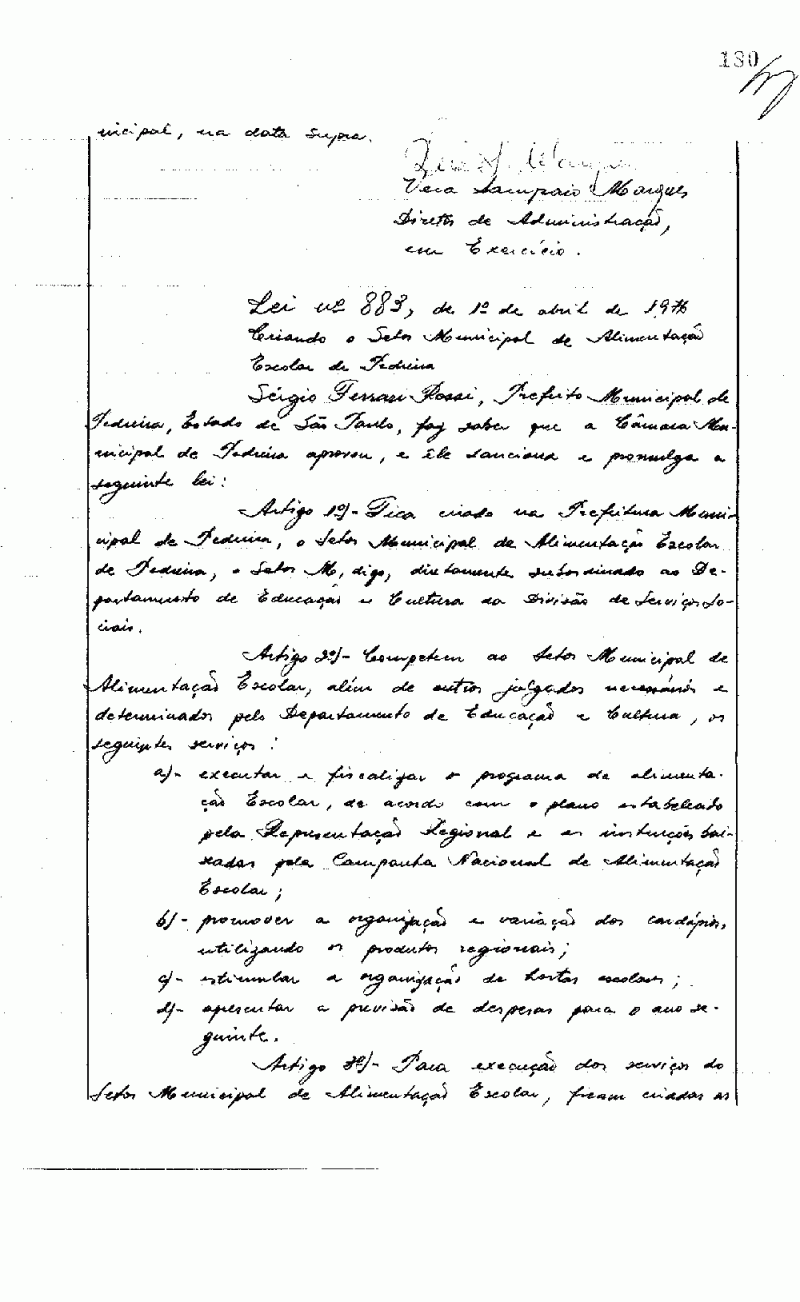 180
nicipal, na data supra.
Vera Sampaio Marques
Diretor de Administração,
em Exercício.
Lei nº 883, de 1º de abril de 1976
Criando o Setor Municipal de Alimentação
Escolar de Pedreira
Sérgio Ferrari Rossi, Prefeito Municipal de
Pedreira, Estado de São Paulo, faz saber que a Câmara Mu-
nicipal de Pedreira aprovou, e êle sanciona e promulga a
seguinte lei:
Artigo 1º)- Fica criado na Prefeitura Muni-
cipal de Pedreira, o Setor Municipal de Alimentação Escolar
de Pedreira, o Setor M, digo, diretamente subordinado ao De-
partamento de Educação e Cultura da Divisão de Serviços So-
ciais.
Artigo 2º)- Competem ao Setor Municipal de
Alimentação Escolar, além de outros julgados necessários e
determinados pelo Departamento de Educação e Cultura, os
seguintes serviços:
a)- executar e fiscalizar o programa de alimenta-
ção Escolar, de acordo com o plano estabelecido
pela Representação Regional e as instruções bai-
xadas pela Campanha Nacional de Alimentação
Escolar;
b)- promover a organização e variação dos cardápios,
utilizando os produtos regionais;
c)- estimular a organização de hortas escolares;
d)- apresentar a previsão de despesas para o ano se-
guinte.
Artigo 3º)- Para execução dos serviços do
Setor Municipal de Alimentação Escolar, ficam criadas as